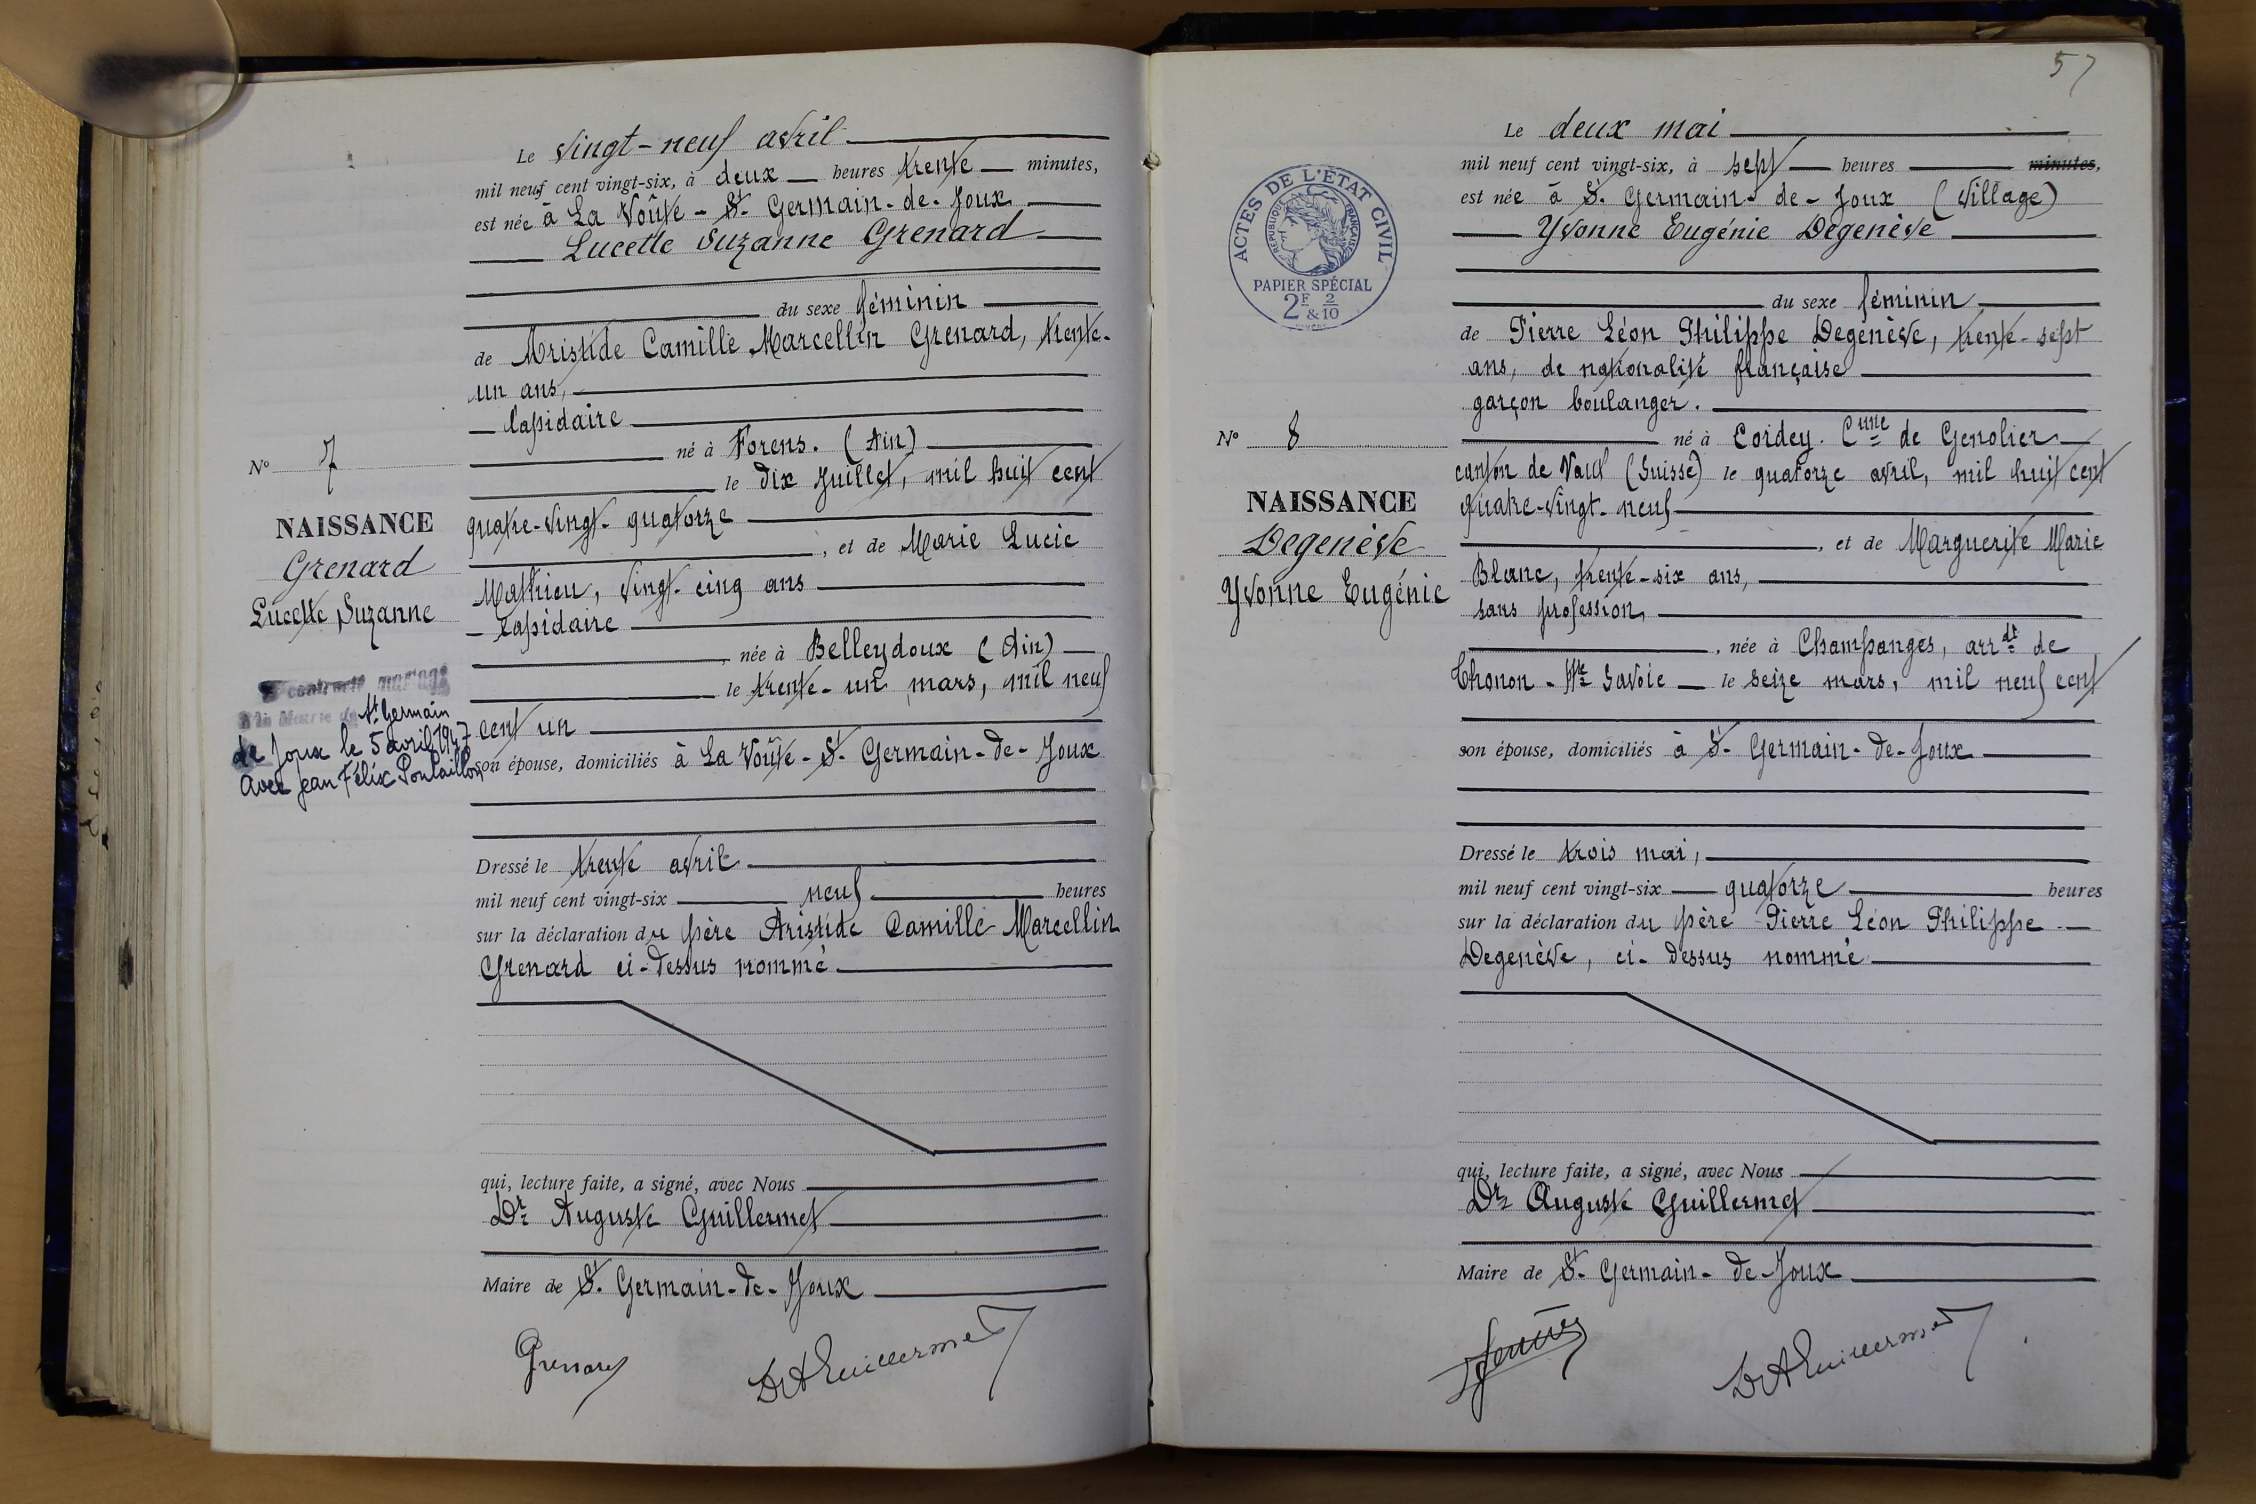 Le vingt-neuf avril
mil neuf cent vingt-six, à deux heures trente minutes,
est née à La Voûte - St. Germain-de-Joux
Lucette Suzanne Grenard
du sexe féminin
de Aristide Camille Marcellin Grenard, trente-
un ans,
lapidaire
né à Forens. (Ain)
le dix Juillet, mil huit cent
quatre-vingt-quatorze
, et de Marie Lucie
Mathieu, vingt-cinq ans
Lapidaire
, née à Belleydoux (Ain)
le trente-un mars, mil neuf
cent un
son épouse, domiciliés à La Voûte - St. Germain-de-Joux
Dressé le trente avril
mil neuf cent vingt-six neuf heures
sur la déclaration du père Aristide Camille Marcellin
Grenard ci-dessus nommé
qui, lecture faite, a signé, avec Nous
Dr Auguste Guillermet
Maire de St. Germain-de-Joux
Grenard
Dr A Guillermet
No 7
NAISSANCE
Grenard
Lucette Suzanne
A contracté mariage
à la Mairie de St. Germain
de Joux le 5 avril 1947
avec Jean Félix Poulaillon
57
Le deux mai
mil neuf cent vingt-six, à sept heures minutes,
est née à St. Germain-de-Joux (Village)
Yvonne Eugénie Degenève
du sexe féminin
de Pierre Léon Philippe Degenève, trente-sept
ans, de nationalité française
garçon boulanger.
né à Coidey. Cune de Genolier
canton de Vaud (Suisse) le quatorze avril, mil huit cent
quatre-vingt-neuf
, et de Marguerite Marie
Blanc, trente-six ans,
sans profession,
, née à Champanges, arrdt de
Thonon - Hte Savoie le seize mars, mil neuf cent
son épouse, domiciliés à St. Germain-de-Joux
Dressé le trois mai,
mil neuf cent vingt-six quatorze heures
sur la déclaration du père Pierre Léon Philippe
Degenève, ci-dessus nommé
qui, lecture faite, a signé, avec Nous
Dr Auguste Guillermet
Maire de St. Germain-de-Joux
Dr A Guillermet
ACTES DE L'ÉTAT CIVIL
RÉPUBLIQUE FRANÇAISE
PAPIER SPÉCIAL
2F 2
&10
No 8
NAISSANCE
Degenève
Yvonne Eugénie